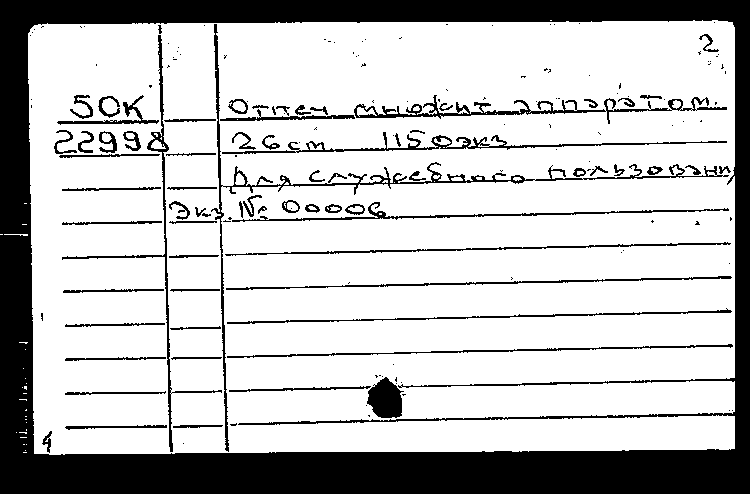 2
50К Отпеч множит. аппаратом.
22998 26 ст. 1150 экз
Для служебного пользовани
Экз. № 00006
4